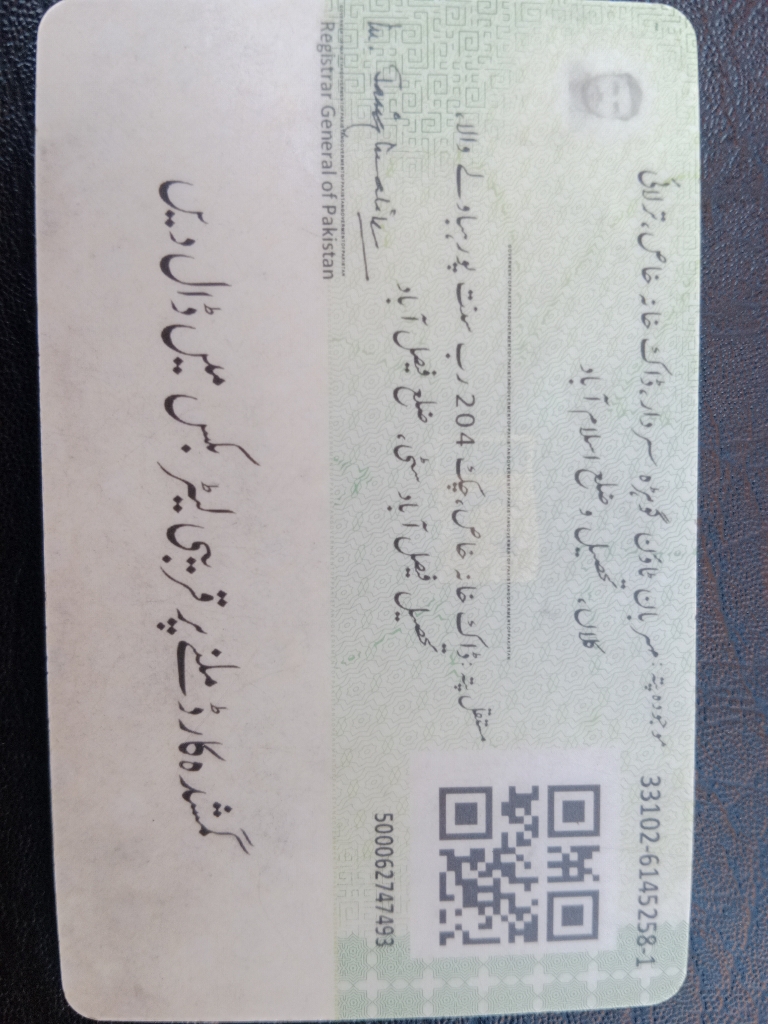 33102-6145258-1
موجودہ پتہ: مہربان ٹاؤن گوہڑہ سردار، ڈاک خانہ خاص، ترلائی
کلاں، تحصیل و ضلع اسلام آباد
مستقل پتہ: ڈاک خانہ خاص، چک 204 رب سنت پور بہاولے والا،
تحصیل فیصل آباد سٹی، ضلع فیصل آباد
500062747493
Registrar General of Pakistan
گمشدہ کارڈ ملنے پر قریبی لیٹر بکس میں ڈال دیں